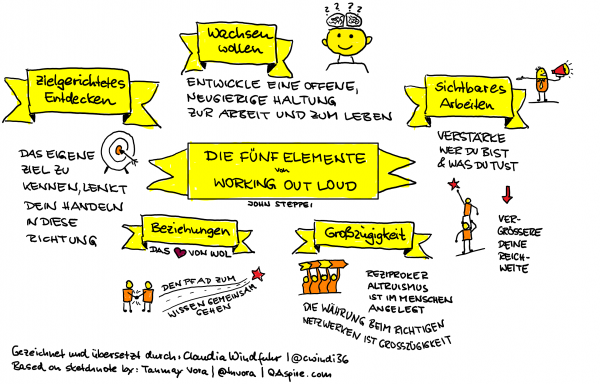 Wachsen
wollen
? ? ? ?
ENTWICKLE EINE OFFENE,
NEUGIERIGE HALTUNG
ZUR ARBEIT UND ZUM LEBEN
Zielgerichtetes
Entdecken
DAS EIGENE
ZIEL ZU
KENNEN, LENKT
DEIN HANDELN
IN DIESE
RICHTUNG
Sichtbares
Arbeiten
VERSTÄRKE
WER DU BIST
& WAS DU TUST
VER-
GRÖSSERE
DEINE
REICH-
WEITE
DIE FÜNF ELEMENTE
von
WORKING OUT LOUD
JOHN STEPPER
Beziehungen
DAS ♥ VON WOL
DEN PFAD ZUM
WISSEN GEMEINSAM
GEHEN
Großzügigkeit
REZIPROKER
ALTRUISMUS
IST IM MENSCHEN
ANGELEGT
DIE WÄHRUNG BEIM RICHTIGEN
NETZWERKEN IST GROSSZÜGIGKEIT
Gezeichnet und übersetzt durch: Claudia Windfuhr | @cwindi36
Based on sketchnote by: Tanmay Vora | @tnvora | QAspire.com